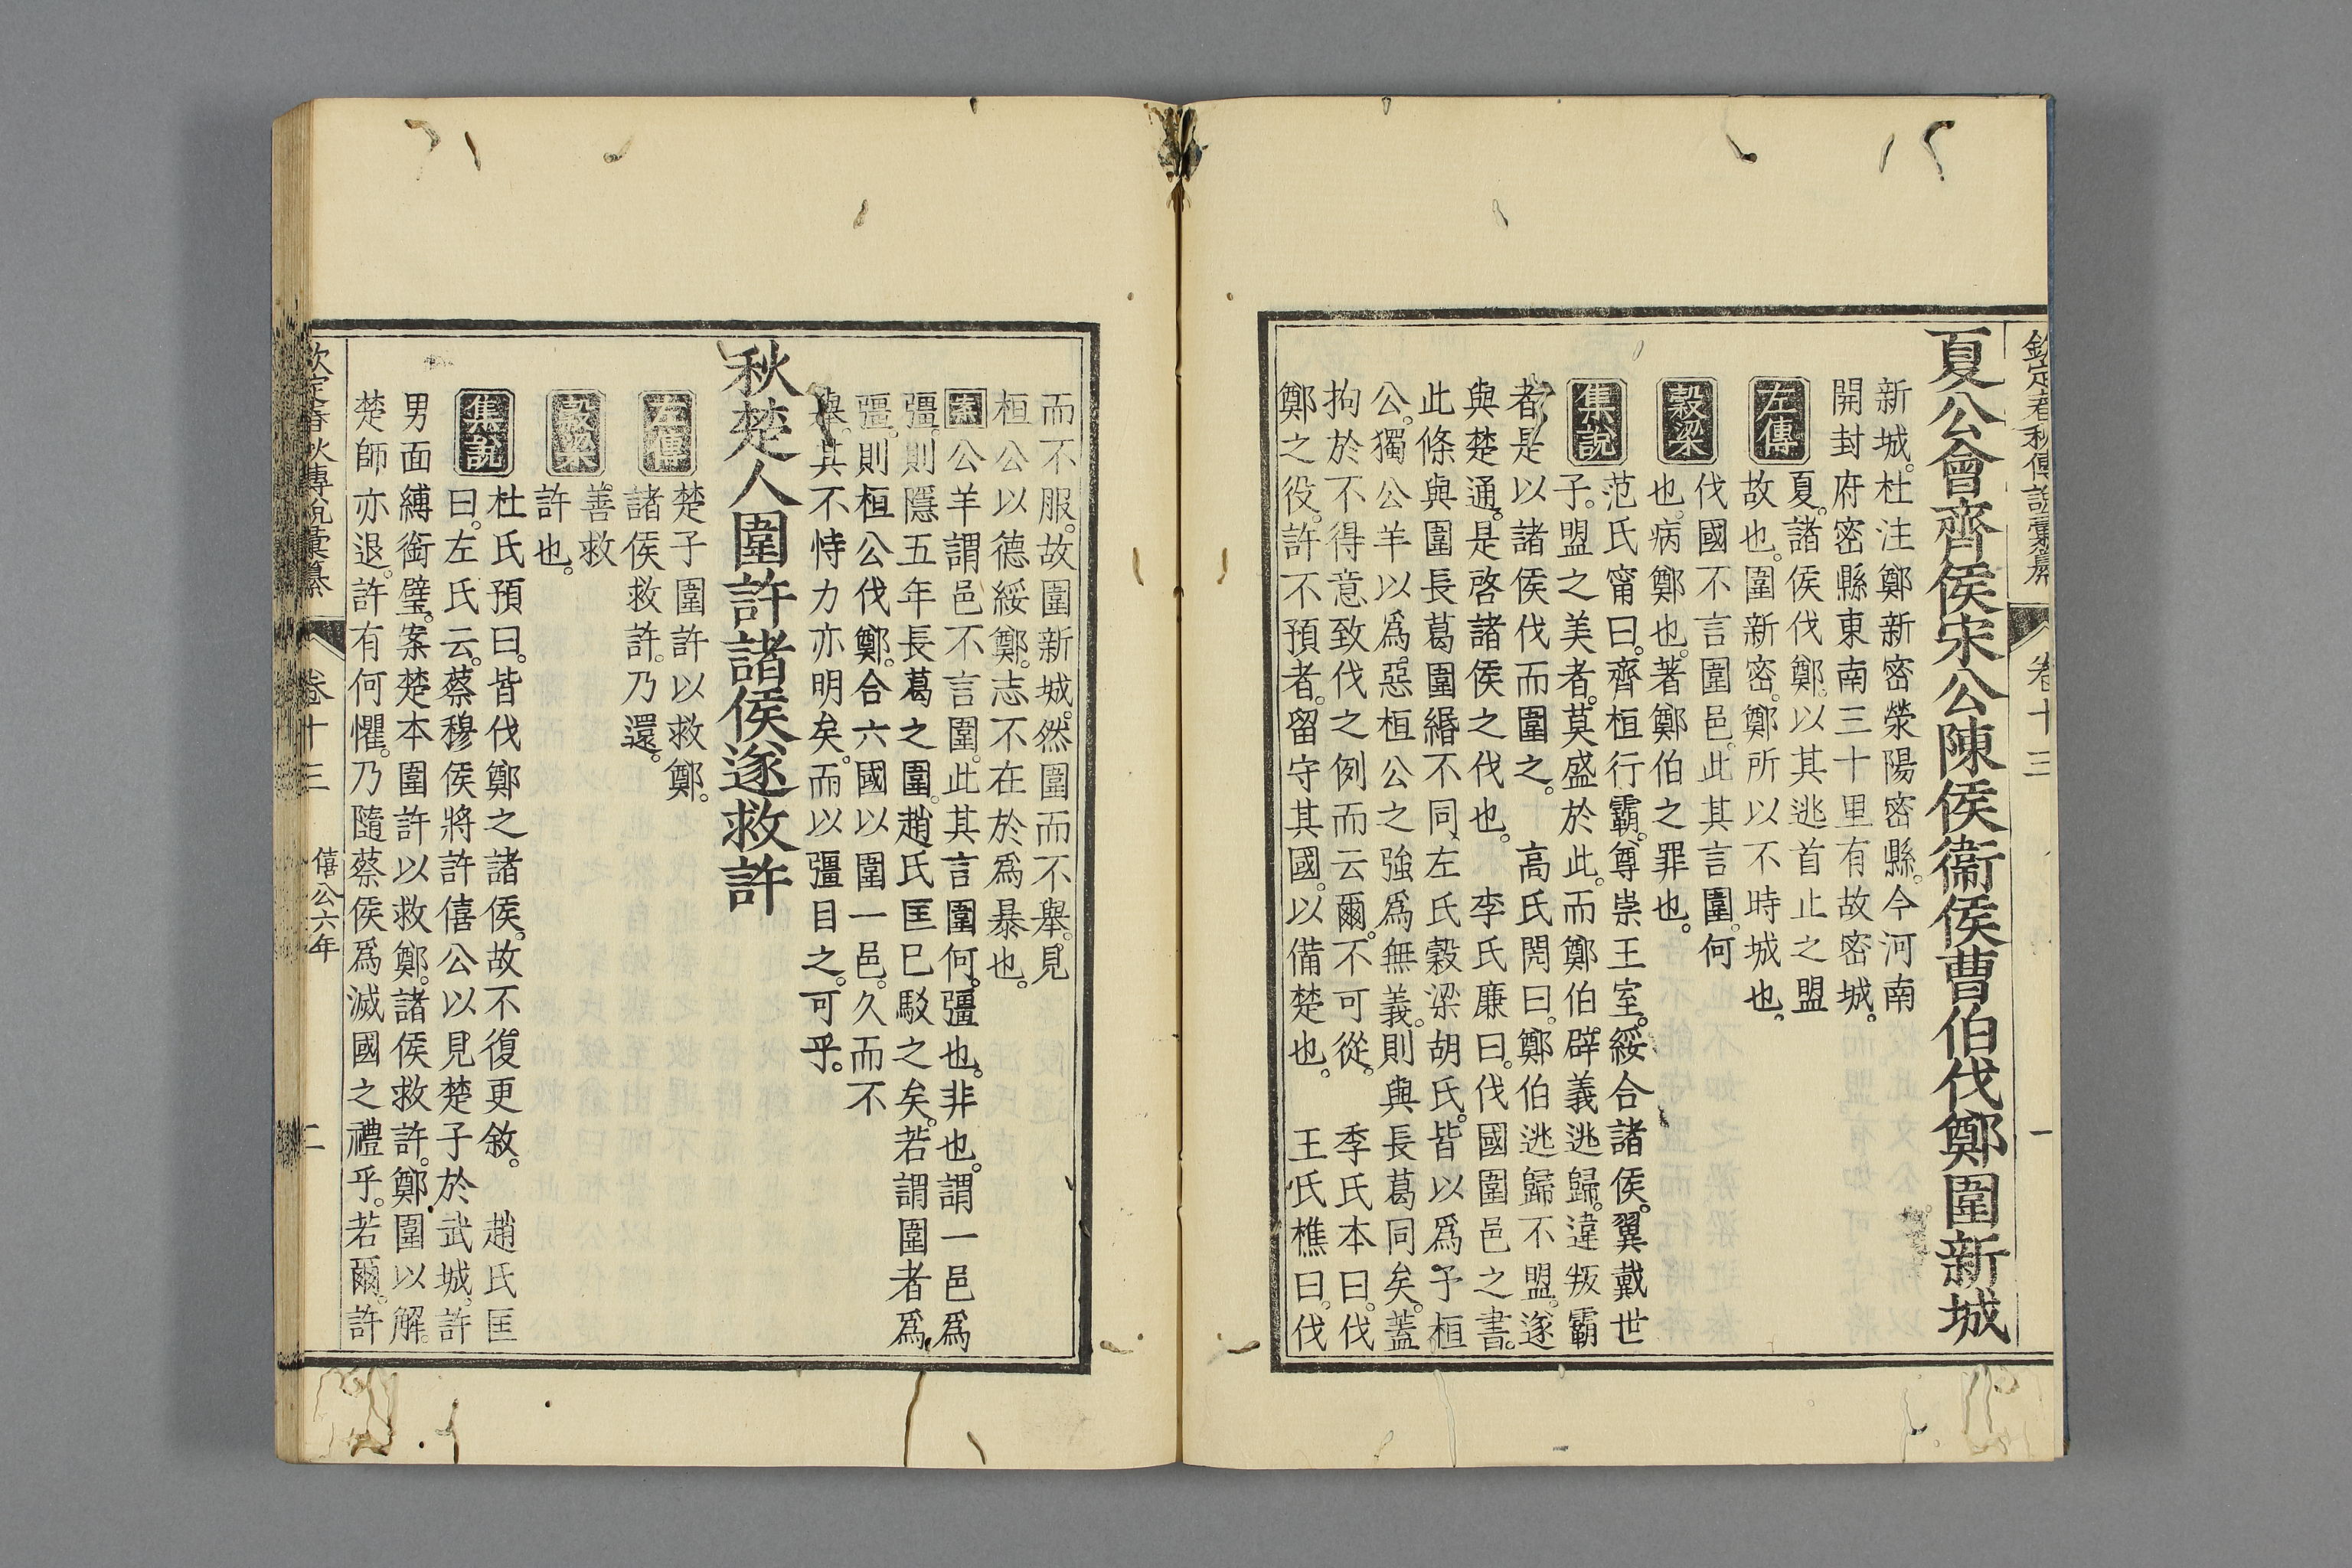 欽定春秋傳說彙纂 卷十三 一
夏公會齊侯宋公陳侯衞侯曹伯伐鄭圍新城
新城。杜注鄭新密滎陽密縣。今河南
開封府密縣東南三十里有故密城。
左傳
夏。諸侯伐鄭。以其逃首止之盟
故也。圍新密。鄭所以不時城也。
穀梁
伐國不言圍邑。此其言圍。何
也。病鄭也。著鄭伯之罪也。
集說
范氏甯曰。齊桓行霸。尊崇王室。綏合諸侯。翼戴世
子。盟之美者。莫盛於此。而鄭伯。辟義逃歸。違叛霸
者。是以諸侯伐而圍之。 高氏閌曰。鄭伯逃歸不盟。遂
與楚通。是啓諸侯之伐也。 李氏廉曰。伐國圍邑之書。
此條與圍長葛圍緡不同。左氏穀梁胡氏。皆以爲予桓
公。獨公羊以爲。惡桓公之強爲無義。則與長葛同矣。蓋
拘於不得意致伐之例而云爾。不可從。 季氏本曰。伐
鄭之役。許不預者。留守其國。以備楚也。 王氏樵曰。伐
而不服。故圍新城。然圍而不舉。見
桓公以德綏鄭。志不在於爲暴也。
案公羊謂邑不言圍。此其言圍何。彊也。非也。謂一邑爲
彊。則隱五年長葛之圍。趙氏匡巳駁之矣。若謂圍者爲
彊。則桓公伐鄭。合六國以圍一邑。久而不
舉。其不恃力亦明矣。而以彊目之。可乎。
秋楚人圍許諸侯遂救許
左傳
楚子圍許以救鄭。
諸侯救許。乃還。
穀梁
善救
許也。
集說
杜氏預曰。皆伐鄭之諸侯。故不復更敘。 趙氏匡
曰。左氏云。蔡穆侯將許僖公以見楚子於武城。許
男面縛銜璧。案楚本圍許以救鄭。諸侯救許。鄭圍以解。
楚師亦退。許有何懼。乃隨蔡侯爲滅國之禮乎。若爾。許
欽定春秋傳說彙纂 卷十三 僖公六年 二